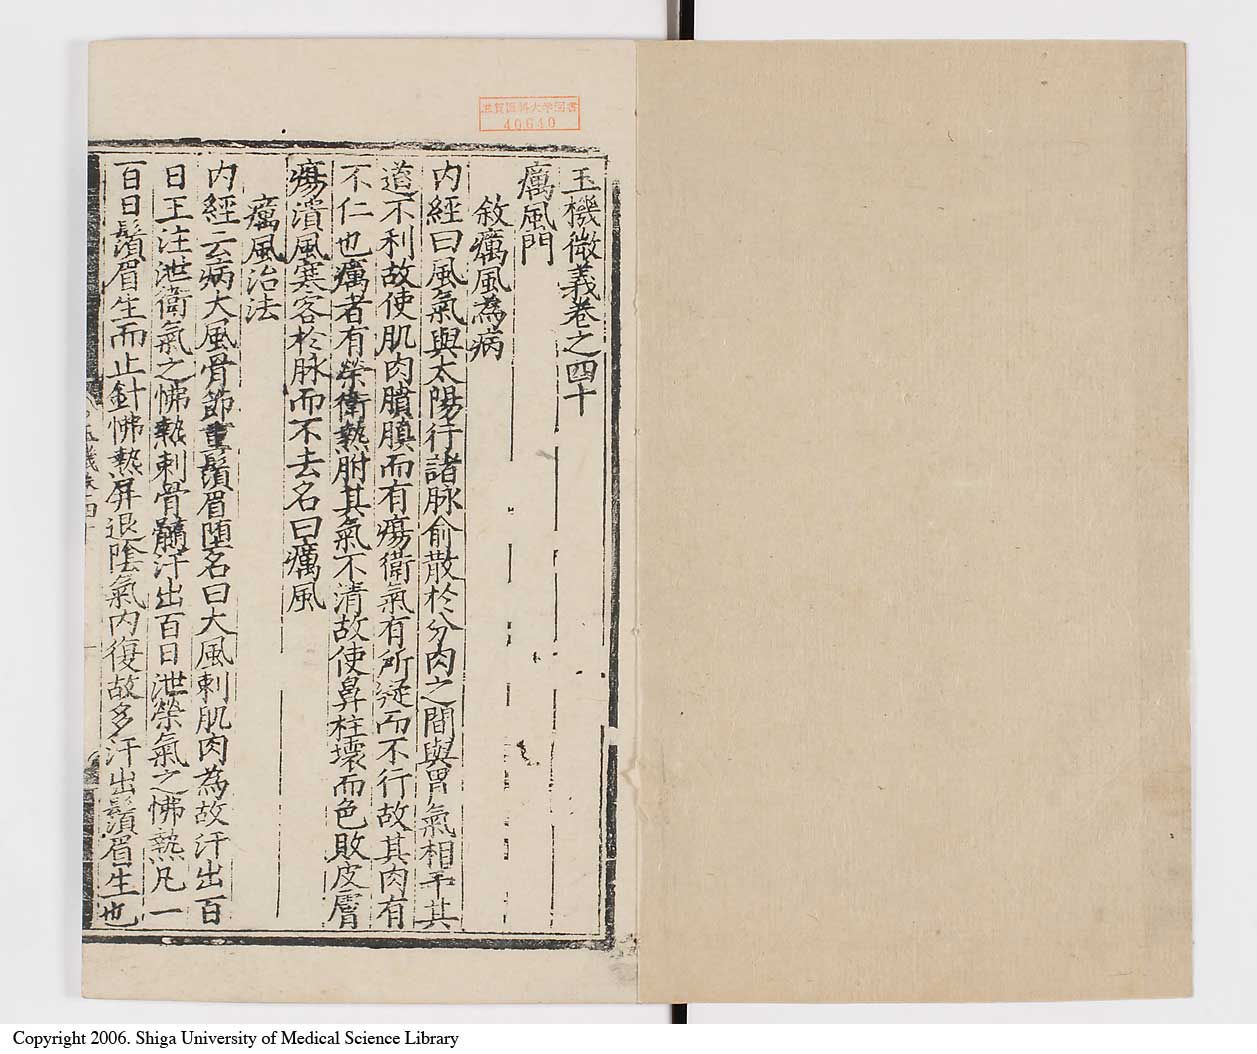 滋賀医科大学図書
40640
玉機微義卷之四十
癘風門
敘癘風為病
内經曰風氣與太陽行諸脉俞散於分肉之間與胃氣相干其
道不利故使肌肉膹䐜而有瘍衛氣有所凝而不行故其肉有
不仁也癘者有榮衛熱胕其氣不清故使鼻柱壞而色敗皮膚
瘍潰風寒客於脉而不去名曰癘風
癘風治法
内經云病大風骨節重鬚眉堕名曰大風刺肌肉為故汗出百
日王注泄衛氣之怫熱刺骨髓汗出百日泄榮氣之怫熱凡一
百日鬚眉生而止針怫熱屏退陰氣内復故多汗出鬚眉生也
Copyright 2006. Shiga University of Medical Science Library